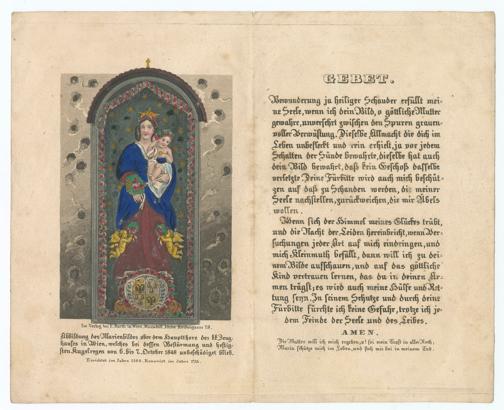 Im Verlag bei J. Barth in Wien, Mariahilf,
Abbildung des Marienbildes ober dem Hauptthore des k.k. Zeug-
hauses in Wien, welches bei dessen Bestürmung und heftig-
sten Kugelregen von 6. bis 7. October 1848 unbeschädiget blieb.
Errichtet im Jahre Renovirt im Jahre
GEBET.
Bewunderung ja heiliger Schauder erfüllt mei-
ne Seele, wenn ich dein Bild, o göttliche Mutter
gewahre, unversehrt zwischen den Spuren grauen-
voller Verwüstung. Dieselbe Allmacht die dich im
Leben unbefleckt und rein erhielt, ja vor jedem
Schatten der Sünde bewahrte, dieselbe hat auch
dein Bild bewahrt, daß kein Geschoß dasselbe
verletzte. Deine Fürbitte wird auch mich beschüt-
zen auf daß zu Schanden werden, die meiner
Seele nachstellen, zurückweichen, die mir Übels
wollen.
Wenn sich der Himmel meines Glückes trübt,
und die Nacht der Leiden hereinbricht, wenn Ver-
suchungen jeder Art auf mich eindringen, und
mich Kleinmuth befällt, dann will ich zu dei-
nem Bilde aufschauen, und auf das göttliche
Kind vertrauen lernen, das du in deinen Ar-
men trägst; es wird auch meine Hülfe und Ret-
tung seyn. In seinem Schutze und durch deine
Fürbitte fürchte ich keine Gefahr, trotze ich je-
dem Feinde der Seele und des Leibes.
AMEN.
Die Mutter will ich mich ergeben, o! sei mein Trost in aller Noth;
Maria schütze mich im Leben, und steh mir bei in meinem Tod.